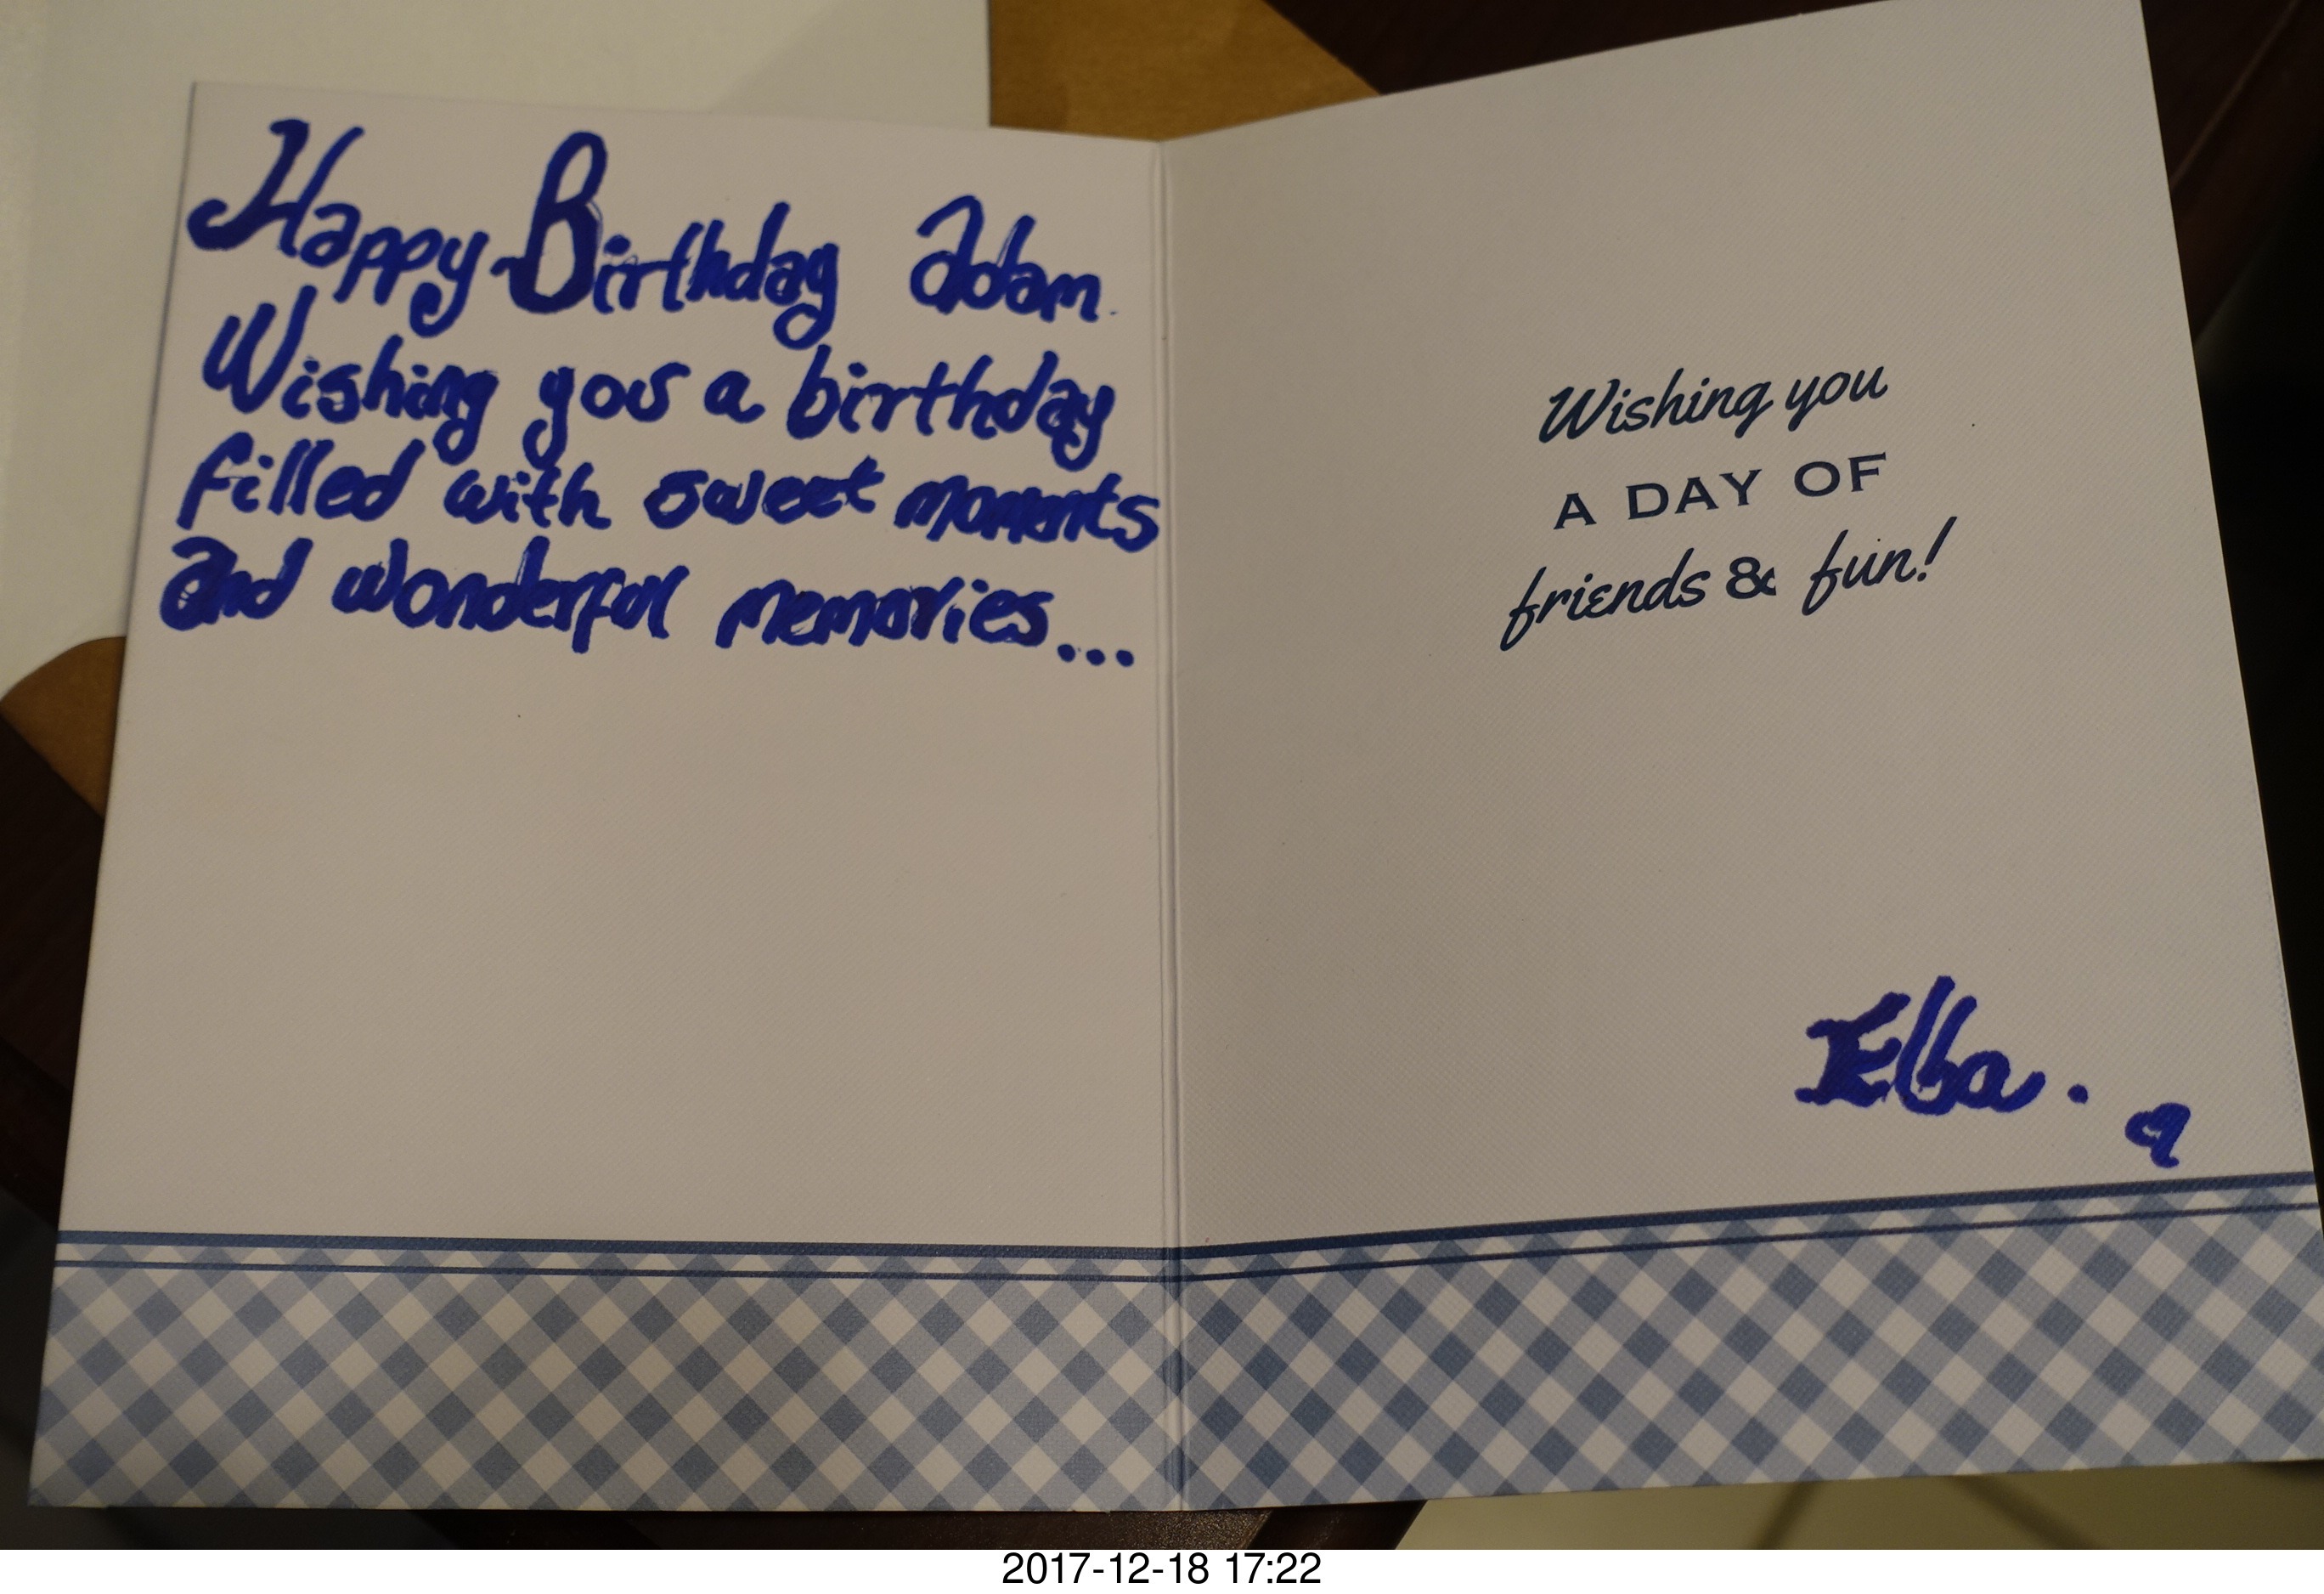 Happy Birthday Adam.
Wishing you a birthday
filled with sweet moments
and wonderful memories...
Wishing you
A DAY OF
friends & fun!
Elba.
2017-12-18 17:22